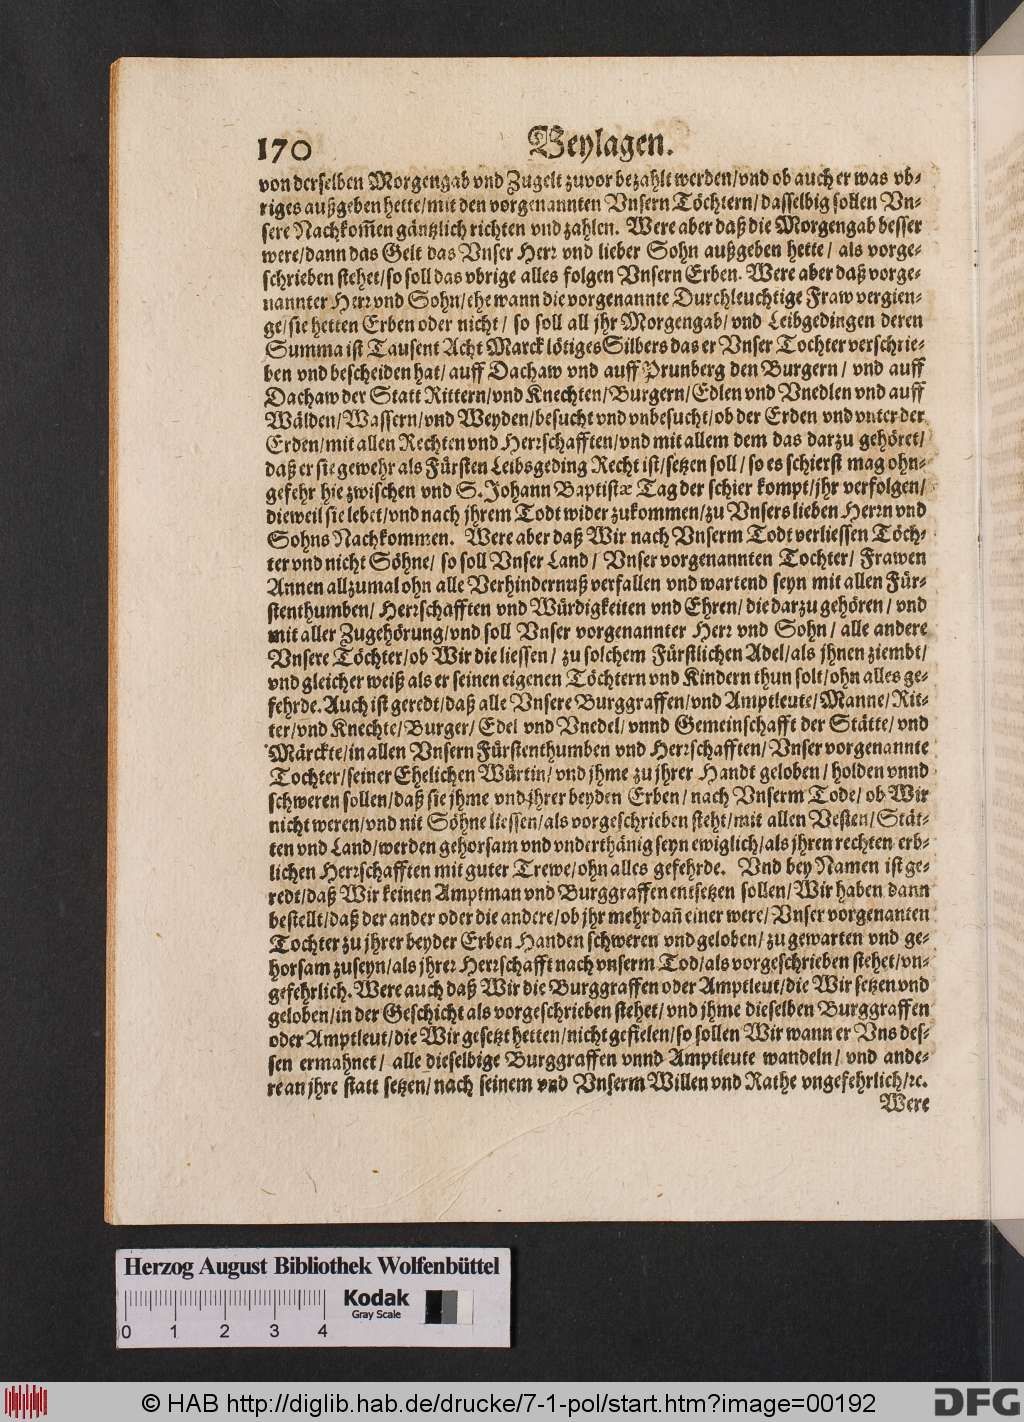 170 Beylagen.
von derselben Morgengab vnd Zugelt zuvor bezahlt werden/vnd ob auch er was vb⸗
riges außgeben hette/mit den vorgenannten Vnsern Töchtern/dasselbig sollen Vn⸗
sere Nachkom̃en gäntzlich richten vnd zahlen. Were aber daß die Morgengab besser
were/dann das Gelt das Vnser Herr vnd lieber Sohn außgeben hette/ als vorge⸗
schrieben stehet/so soll das vbrige alles folgen Vnsern Erben. Were aber daß vorge⸗
nannter Herr vnd Sohn/ehe wann die vorgenannte Durchleuchtige Fraw vergien⸗
ge/sie hetten Erben oder nicht/ so soll all jhr Morgengab/ vnd Leibgedingen deren
Summa ist Tausent Acht Marck lötiges Silbers das er Vnser Tochter verschrie⸗
ben vnd bescheiden hat/ auff Dachaw vnd auff Prunberg den Burgern/ vnd auff
Dachaw der Statt Rittern/vnd Knechten/Burgern/Edlen vnd Vnedlen vnd auff
Wälden/Wassern/vnd Weyden/besucht vnd vnbesucht/ob der Erden vnd vnter der
Erden/mit allen Rechten vnd Herrschafften/vnd mit allem dem das darzu gehöret/
daß er sie gewehr als Fürsten Leibsgeding Recht ist/setzen soll/ so es schierst mag ohn⸗
gefehr hie zwischen vnd S. Johann Baptistæ Tag der schier kompt/jhr verfolgen/
dieweil sie lebet/vnd nach jhrem Todt wider zukommen/zu Vnsers lieben Herrn vnd
Sohns Nachkommen. Were aber daß Wir nach Vnserm Todt verliessen Töch⸗
ter vnd nicht Söhne/ so soll Vnser Land/ Vnser vorgenannten Tochter/ Frawen
Annen allzumal ohn alle Verhindernuß verfallen vnd wartend seyn mit allen Für⸗
stenthumben/ Herrschafften vnd Würdigkeiten vnd Ehren/ die darzu gehören/ vnd
mit aller Zugehörung/vnd soll Vnser vorgenannter Herr vnd Sohn/ alle andere
Vnsere Töchter/ob Wir die liessen/ zu solchem Fürstlichen Adel/als jhnen ziembt/
vnd gleicher weiß als er seinen eigenen Töchtern vnd Kindern thun solt/ohn alles ge⸗
fehrde. Auch ist geredt/daß alle Vnsere Burggraffen/vnd Amptleute/Manne/Rit⸗
ter/vnd Knechte/Burger/ Edel vnd Vnedel/ vnnd Gemeinschafft der Stätte/ vnd
Märckte/in allen Vnsern Fürstenthumben vnd Herrschafften/ Vnser vorgenannte
Tochter/seiner Ehelichen Würtin/ vnd jhme zu jhrer Handt geloben/ holden vnnd
schweren sollen/daß sie jhme vnd jhrer beyden Erben/ nach Vnserm Tode/ ob Wir
nicht weren/vnd nit Söhne liessen/als vorgeschrieben steht/mit allen Vesten/Stät⸗
ten vnd Land/werden gehorsam vnd vnderthänig seyn ewiglich/als jhren rechten erb⸗
lichen Herrschafften mit guter Trewe/ohn alles gefehrde. Vnd bey Namen ist ge⸗
redt/daß Wir keinen Amptman vnd Burggraffen entsetzen sollen/Wir haben dann
bestellt/daß der ander oder die andere/ob jhr mehr dañ einer were/ Vnser vorgenanten
Tochter zu jhrer beyder Erben Handen schweren vnd geloben/zu gewarten vnd ge⸗
horsam zuseyn/als jhrer Herrschafft nach vnserm Tod/als vorgeschrieben stehet/vn⸗
gefehrlich. Were auch daß Wir die Burggraffen oder Amptleut/die Wir setzen vnd
geloben/in der Geschicht als vorgeschrieben stehet/vnd jhme dieselben Burggraffen
oder Amptleut/die Wir gesetzt hetten/nicht gefielen/so sollen Wir wann er Vns des⸗
sen ermahnet/ alle dieselbige Burggraffen vnnd Amptleute wandeln/ vnd ande⸗
re an jhre statt setzen/ nach seinem vnd Vnserm Willen vnd Rathe vngefehrlich/ꝛc.
Were
Herzog August Bibliothek Wolfenbüttel
Kodak
Gray Scale
0 1 2 3 4
© HAB http://diglib.hab.de/drucke/7-1-pol/start.htm?image=00192
DFG